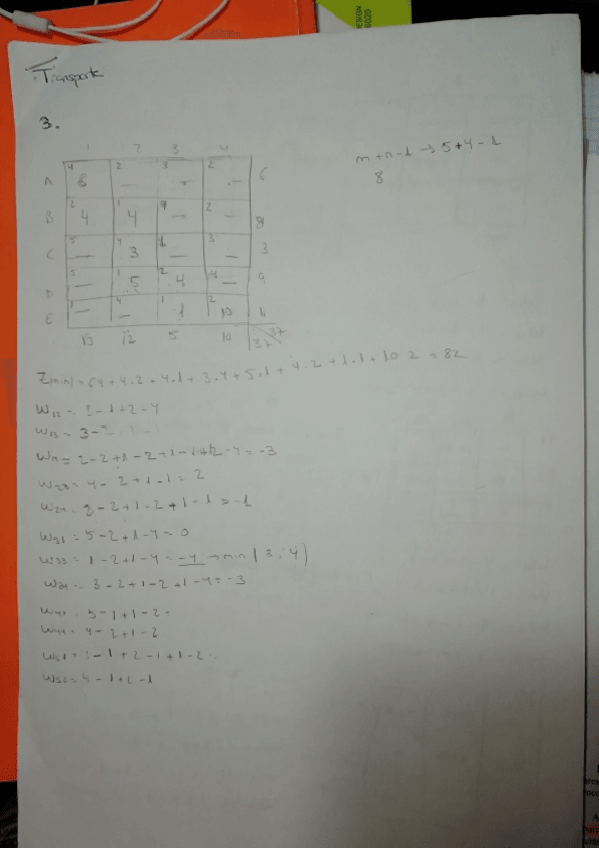 Transporte
3.
m+n-1 → 5+4-1
8
1 2 3 4
A 4 6 2 — 3 — 2 — 6
B 2 4 1 4 4 — 2 — 8
C 5 — 4 3 1 — 3 — 3
D 5 — 1 5 2 4 4 — 9
E 1 — 4 — 1 1 2 10 11
10 12 5 10 37 37
+ 4.2 + 4.1 + 3.4 + 5.1 + 4.2 + 1.1 + 10.2 = 82
W12 = 2-1+2-4
W13 = 3-2
= 2-2+1-2+1-1+2-4 = -3
W23 = 4-2+1-1 = 2
W24 = 2-2+1-2+1-1 = -1
W31 = 5-2+1-4 = 0
W33 = 1-2+1-4 = -4 → min (3, 4)
W34 = 3-2+1-2+1-4 = -3
W41 = 5-1+1-2 =
W44 = 4-2+1-2
W51 = 1-1+2-1+1-2 =
W52 = 4-1+2-1